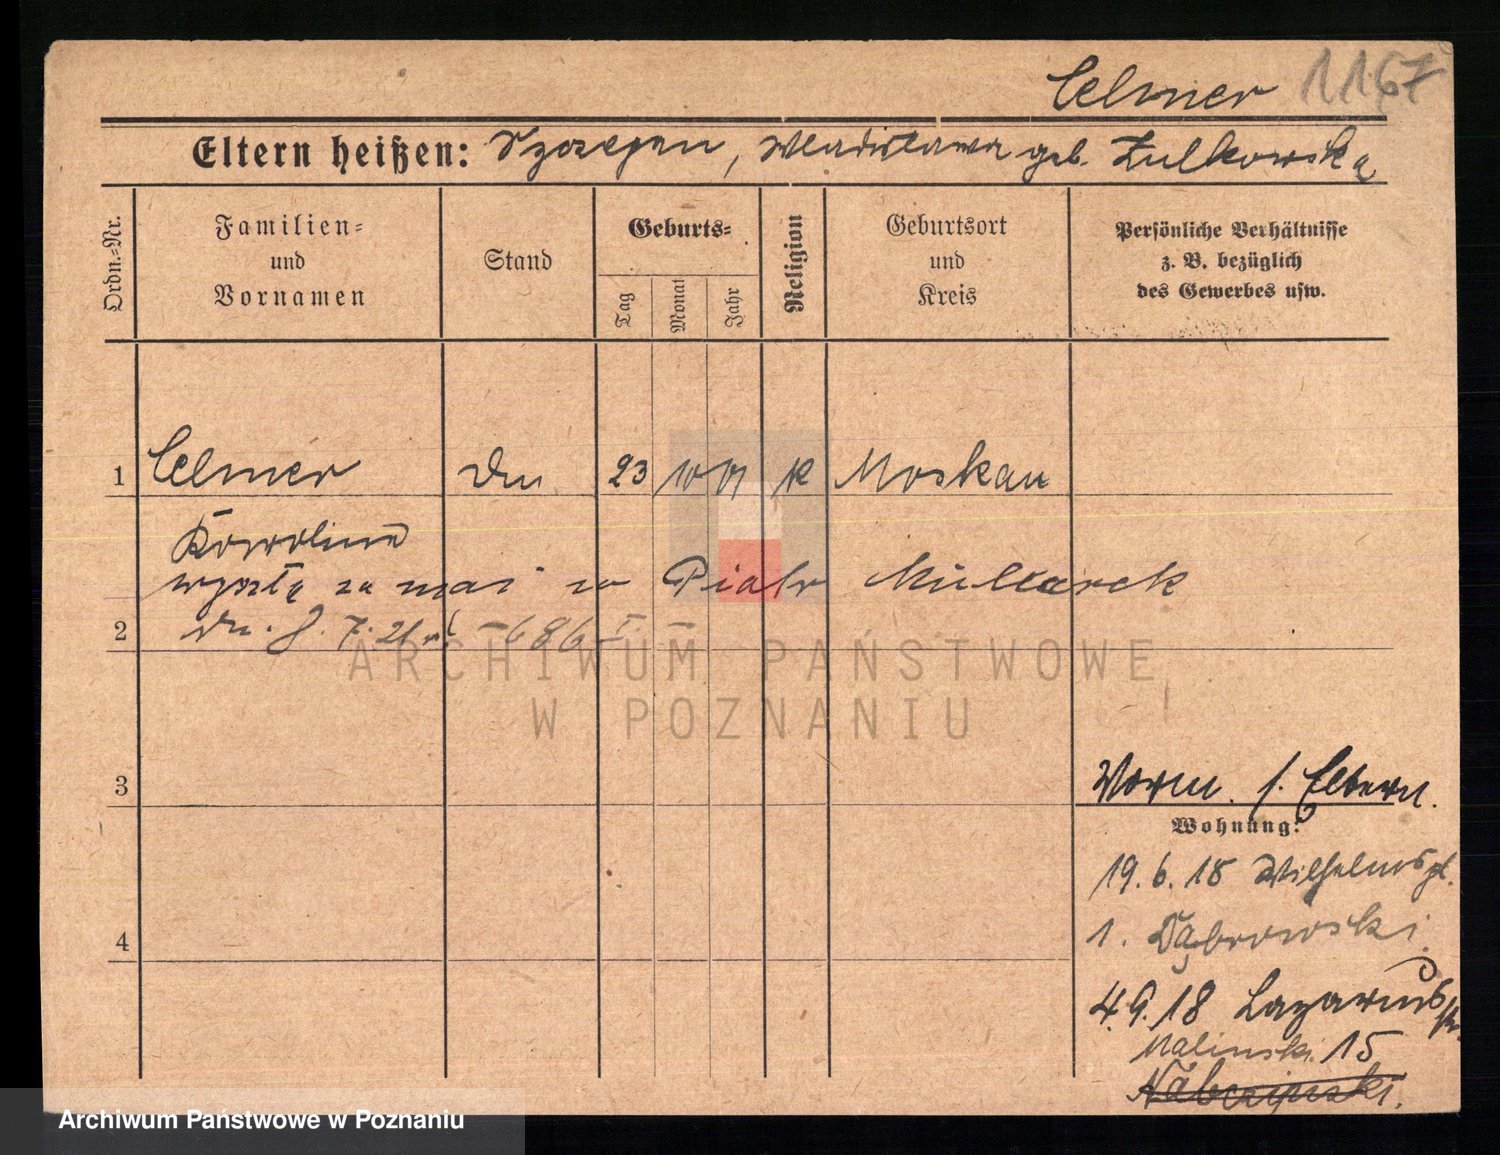 Celmer 1167
Eltern heißen: Szczepan, Wladislawa geb. Zulkowska
Ordn.-Nr.
Familien- und Vornamen
Stand
Geburts-
Tag
Monat
Jahr
Religion
Geburtsort und Kreis
Persönliche Verhältnisse z. B. bezüglich des Gewerbes usw.
1 Celmer 23 10 01 K Moskau
Karoline
wyszła za mąż za Piotr
2 dn. 8. 7. 21 r. -686 I -
ARCHIWUM PAŃSTWOWE
W POZNANIU
3
Vorm. s. Eltern.
Wohnung:
19. 6. 18 Wilhelmspl.
4
1. Dąbrowski
4. 9. 18 Lazarusstr.
Malinski 15
Archiwum Państwowe w Poznaniu